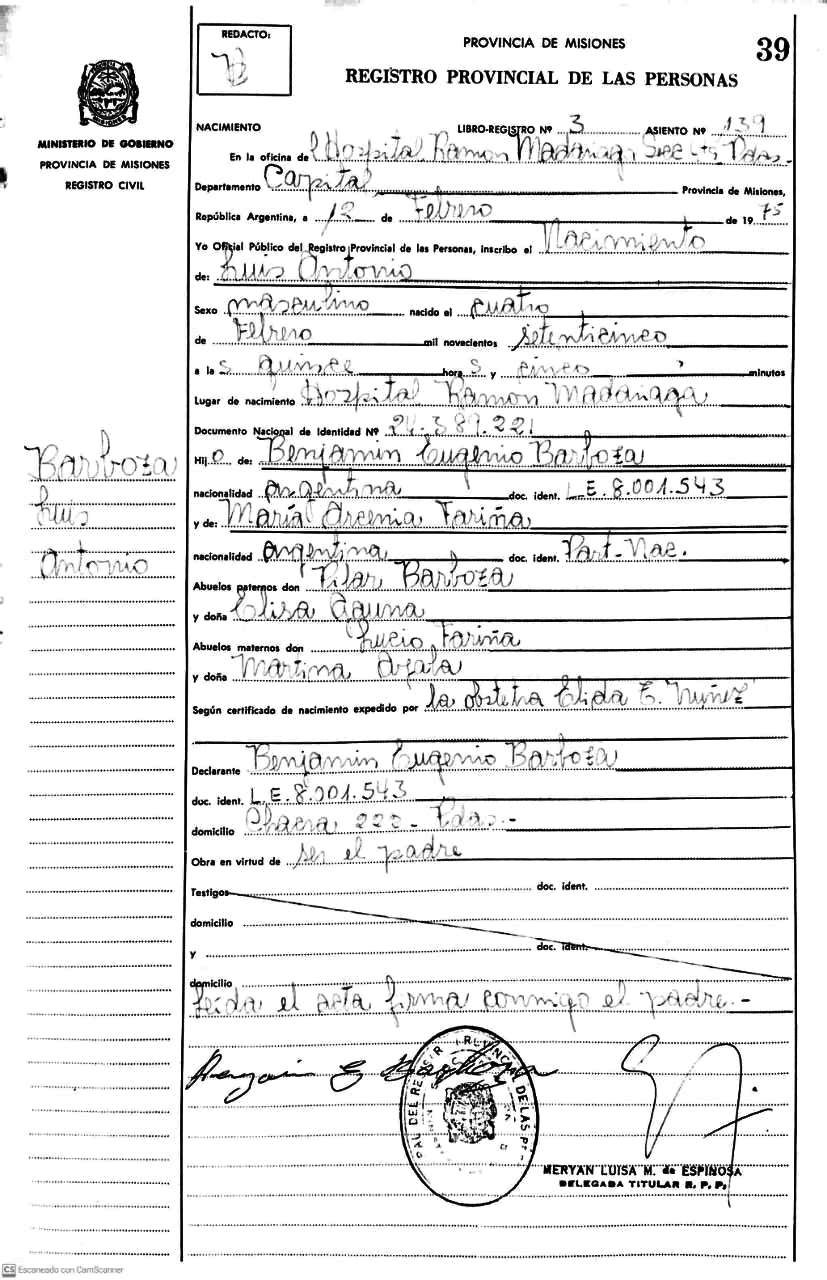 REDACTO:
PROVINCIA DE MISIONES
39
REGISTRO PROVINCIAL DE LAS PERSONAS
MINISTERIO DE GOBIERNO
PROVINCIA DE MISIONES
REGISTRO CIVIL
NACIMIENTO LIBRO-REGISTRO Nº 3 ASIENTO Nº 139
En la oficina de Hospital Ramon Madariaga Pdas.-
Departamento Capital Provincia de Misiones,
República Argentina, a 12 de Febrero de 1975
Yo Oficial Público del Registro Provincial de las Personas, inscribo el Nacimiento
de: Luis Antonio
Sexo masculino nacido el cuatro
de Febrero mil novecientos setenticinco
a la s quince hora s y cinco minutos
Lugar de nacimiento Hospital Ramon Madariaga
Documento Nacional de Identidad Nº 24.389.221
Hij o de: Benjamin Eugenio Barboza
nacionalidad argentina doc. ident. L.E. 8.001.543
y de: María Arcenia Fariña
nacionalidad argentina doc. ident. Part-Nac.
Abuelos paternos don Pilar Barboza
y doña Elisa
Abuelos maternos don Lucio Fariña
y doña Martina Ayala
Según certificado de nacimiento expedido por la obstetra Elida E. Nuñez
Declarante Benjamin Eugenio Barboza
doc. ident. L.E. 8.001.543
domicilio Chacra 222 - Pdas.-
Obra en virtud de ser el padre
Testigos doc. ident.
domicilio
y doc. ident.
domicilio
leida el acta firma conmigo el padre.-
Barboza
Luis
Antonio
MERYAN LUISA M. de ESPINOSA
DELEGADA TITULAR R. P. P.
CS Escaneado con CamScanner